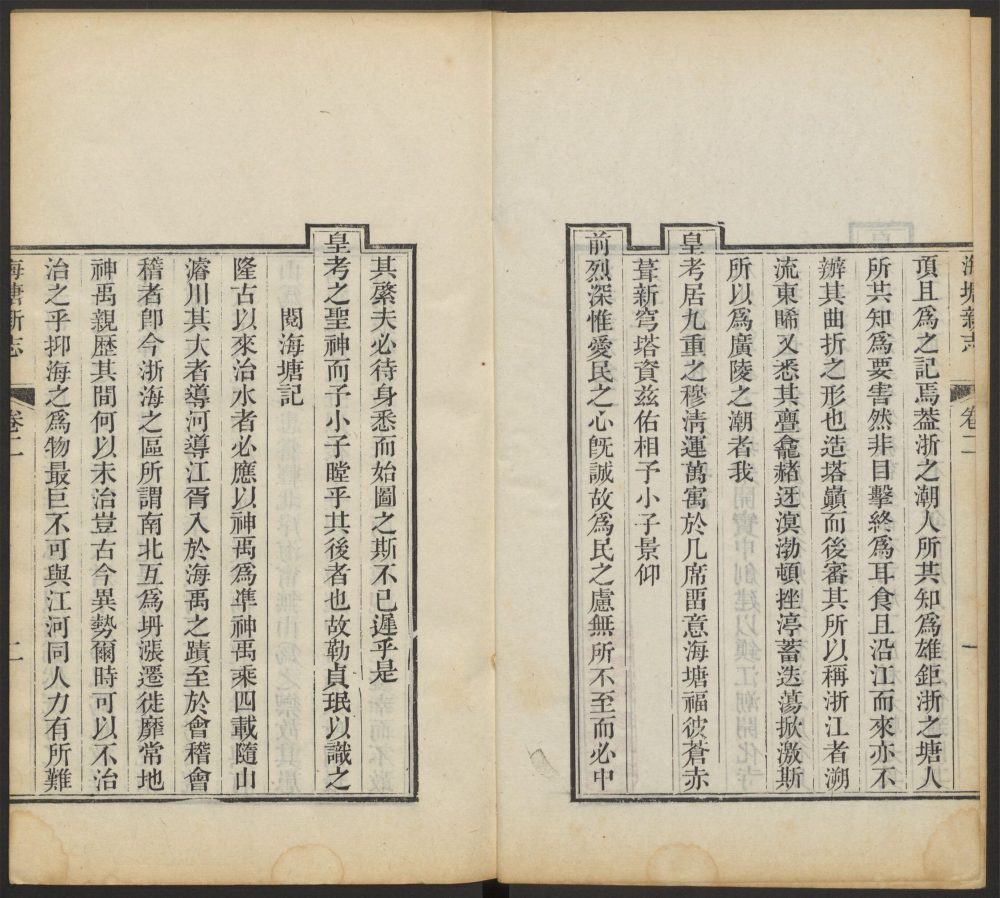 海塘新志
卷二
一
頂且爲之記焉葢浙之潮人所共知爲雄鉅浙之塘人
所共知爲要害然非目擊終爲耳食且沿江而來亦不
辦其曲折之形也造塔巔而後審其所以稱浙江者溯
流東睎又悉其亹龕赭迓溟渤頓挫渟蓄迭蕩掀激斯
所以爲廣陵之潮者我
皇考居九重之穆淸運萬寓於几席畱意海塘福彼蒼赤
葺新穹塔資兹佑相予小子景仰
前烈深惟愛民之心旣誠故爲民之慮無所不至而必中
其縏夫必待身悉而始圖之斯不已遲乎是
皇考之聖神而子小子瞠乎其後者也故勒貞珉以識之
閱海塘記
隆古以來治水者必應以神禹爲準神禹乘四載隨山
濬川其大者導河導江胥入於海禹之蹟至於會稽會
稽者卽今浙海之區所謂南北互爲坍漲遷徙靡常地
神禹親歷其間何以未治豈古今異勢爾時可以不治
治之乎抑海之爲物最巨不可與江河同人力有所難
海塘新志
卷二
二